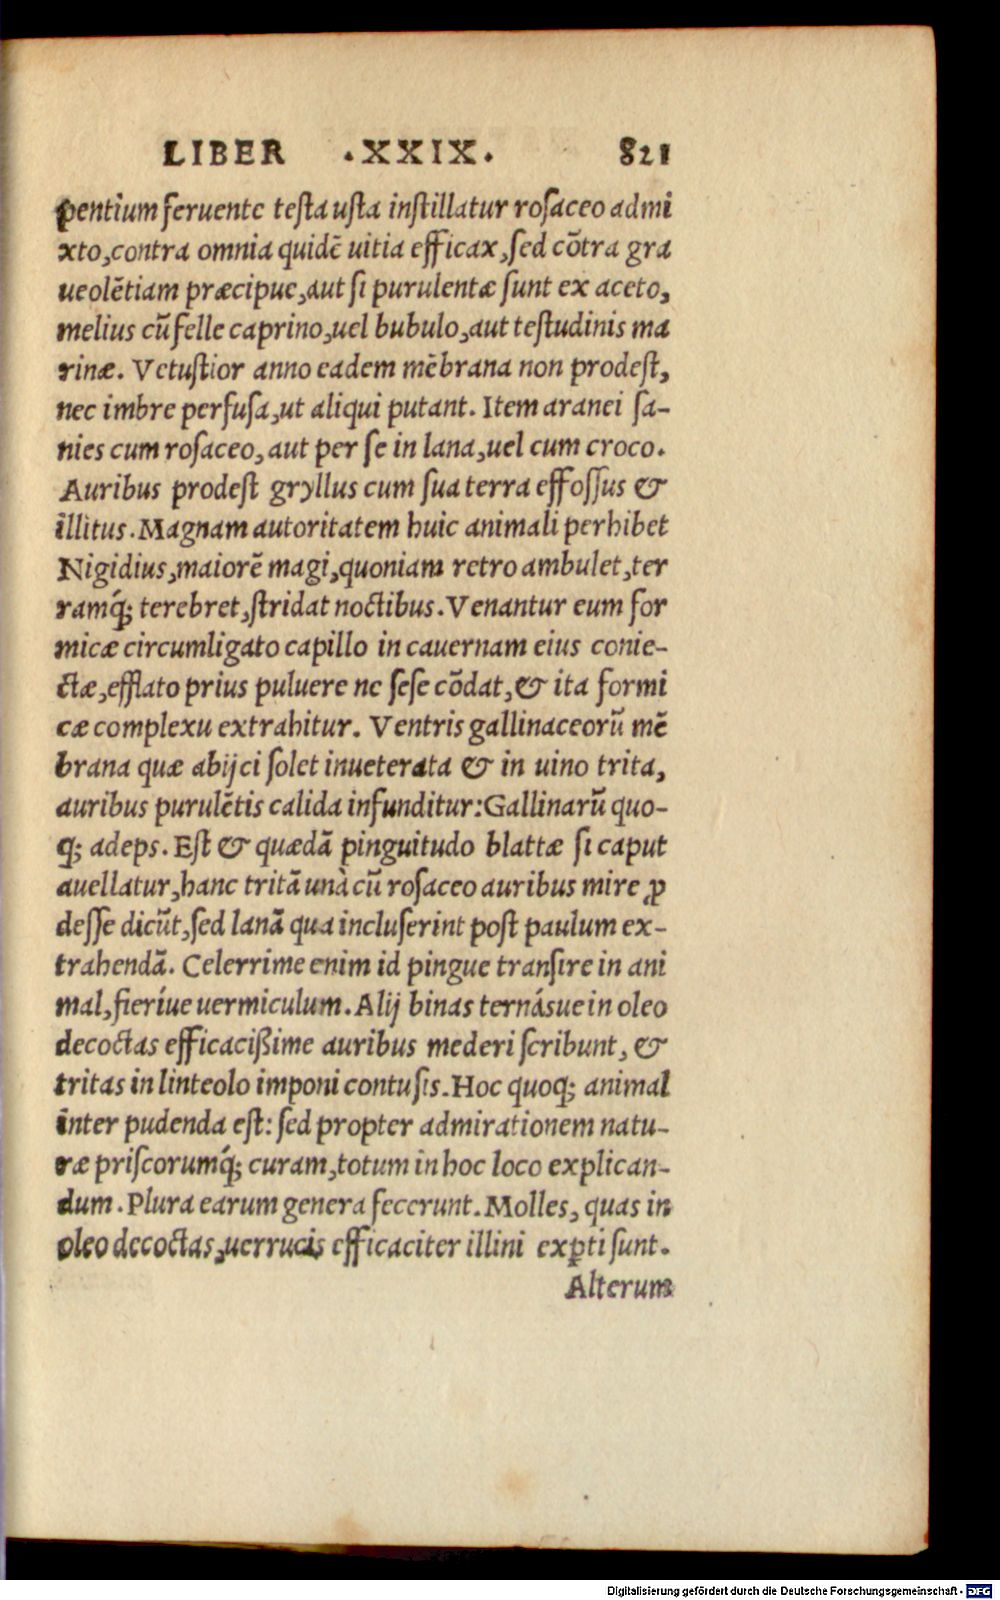 LIBER .XXIX. 821
pentium feruente testa usta instillatur rosaceo admi
xto,contra omnia quidẽ uitia efficax,sed cõtra gra
ueolẽtiam præcipue,aut si purulentæ sunt ex aceto,
melius cũ felle caprino,uel bubulo,aut testudinis ma
rinæ. Vetustior anno eadem mẽbrana non prodest,
nec imbre perfusa,ut aliqui putant. Item aranei sa-
nies cum rosaceo, aut per se in lana,uel cum croco.
Auribus prodest gryllus cum sua terra effossus &
illitus. Magnam autoritatem huic animali perhibet
Nigidius,maiorẽ magi,quoniam retro ambulet,ter
ramq́; terebret,stridat noctibus. Venantur eum for
micæ circumligato capillo in cauernam eius conie-
ctæ,efflato prius puluere ne sese cõdat,& ita formi
cæ complexu extrahitur. Ventris gallinaceorũ mẽ
brana quæ abijci solet inueterata & in uino trita,
auribus purulẽtis calida infunditur:Gallinarũ quo-
q; adeps. Est & quædã pinguitudo blattæ si caput
auellatur,hanc tritã unà cũ rosaceo auribus mire ꝓ
desse dicũt,sed lanã qua incluserint post paulum ex-
trahendã. Celerrime enim id pingue transire in ani
mal,fieríue uermiculum. Alij binas ternásue in oleo
decoctas efficacißime auribus mederi scribunt, &
tritas in linteolo imponi contusis. Hoc quoq; animal
inter pudenda est: sed propter admirationem natu-
ræ priscorumq́; curam,totum in hoc loco explican-
dum. Plura earum genera fecerunt. Molles, quas in
oleo decoctas,uerrucis efficaciter illini exꝑti sunt.
Alterum
Digitalisierung gefördert durch die Deutsche Forschungsgemeinschaft - DFG